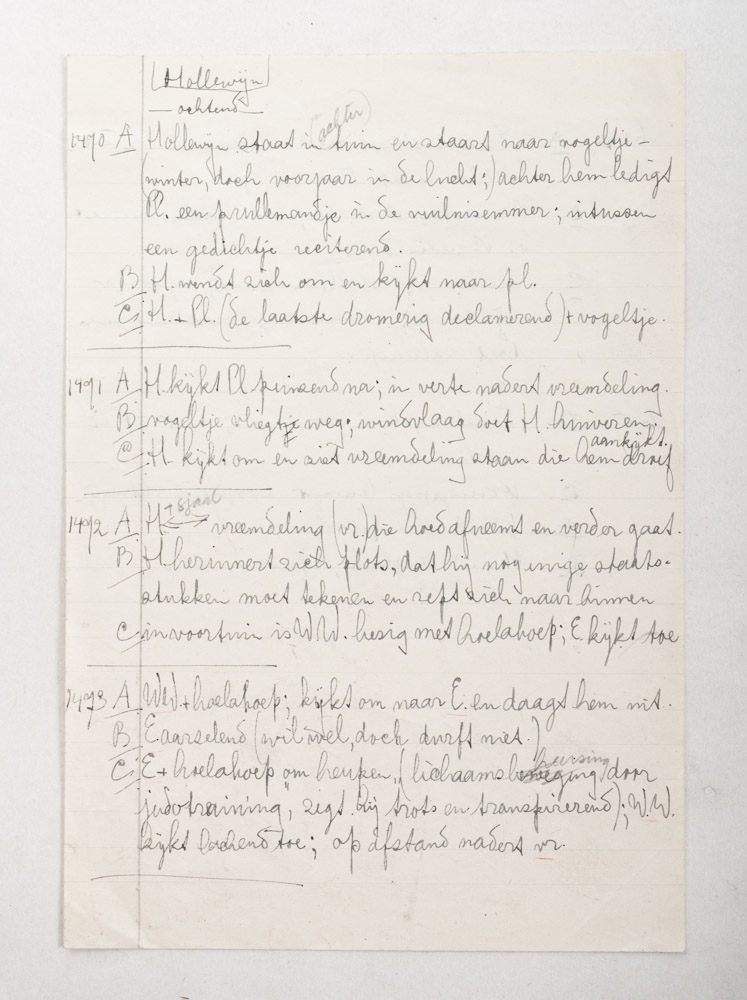 Hollewijn
— ochtend —
(achter)
1490 A Hollewijn staat in tuin en staart naar vogeltje –
(winter, doch voorjaar in de lucht;) achter hem ledigt
Pl. een prullemandje in de vuilnisemmer; intussen
een gedichtje reciterend.
B H. wendt zich om en kijkt naar pl.
C H. + Pl. (de laatste dromerig declamerend) + vogeltje.
1491 A H. kijkt Pl peinzend na; in verte nadert vreemdeling.
B vogeltje vliegt weg; windvlaag doet H. huiveren.
aankijkt.
C H. kijkt om en ziet vreemdeling staan die hem droef
+ sjaal
1492 A H. ⟷ vreemdeling (vr.) die hoed afneemt en verder gaat.
B H herinnert zich plots, dat hij nog enige staats-
stukken moet tekenen en rept zich naar binnen
C in voortuin is W.W. bezig met hoelahoep; E kijkt toe
1493 A W.W. + hoelahoep; kijkt om naar E. en daagt hem uit.
B E. aarselend (wil wel, doch durft niet.)
heersing
C E + hoelahoep om heupen, („lichaamsbeweging door
judotraining", zegt hij trots en transpirerend); W.W.
kijkt lachend toe; op afstand nadert vr.